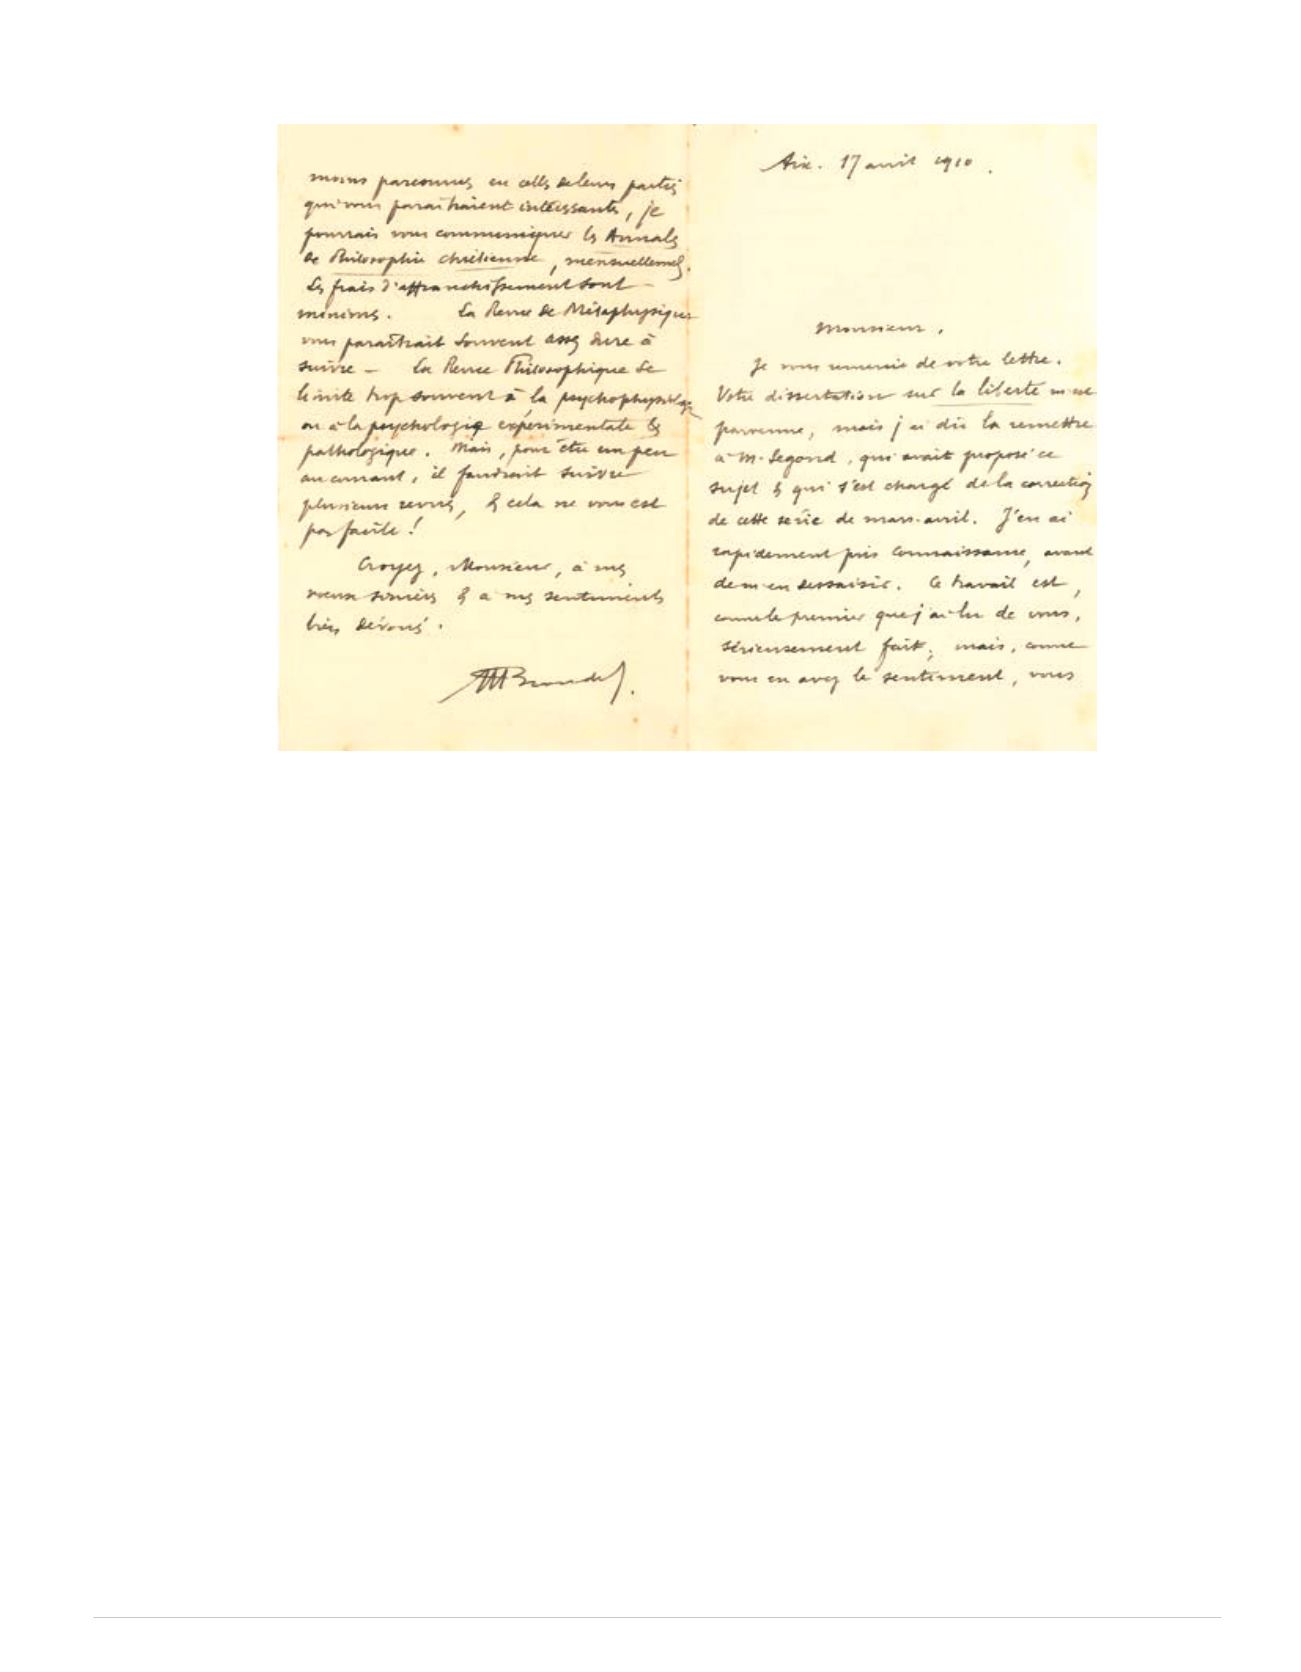 Aix. 17 avril 1910.
Monsieur,
Je vous remercie de votre lettre.
Votre dissertation sur la liberté m'est
parvenue, mais j'ai dû la remettre
à M. Segond, qui avait proposé ce
sujet & qui s'est chargé de la correction
de cette série de mars-avril. J'en ai
rapidement pris connaissance, avant
de m'en dessaisir. Ce travail est,
comme le premier que j'ai lu de vous,
sérieusement fait; mais, comme
vous en avez le sentiment, vous
moins parcourues en celles de leurs parties
qui vous paraîtraient intéressantes, je
pourrais vous communiquer les Annales
de Philosophie chrétienne, mensuellement.
Les frais d'affranchissement sont
minimes. La Revue de Métaphysique
vous paraîtrait souvent assez dure à
suivre – La Revue Philosophique se
limite trop souvent à la psychophysiologie
ou à la psychologie expérimentale &
pathologique. Mais, pour être un peu
au courant, il faudrait suivre
plusieurs revues, & cela ne vous est
pas facile !
Croyez, Monsieur, à mes
vœux sincères & à mes sentiments
bien dévoués.
MBlondel.